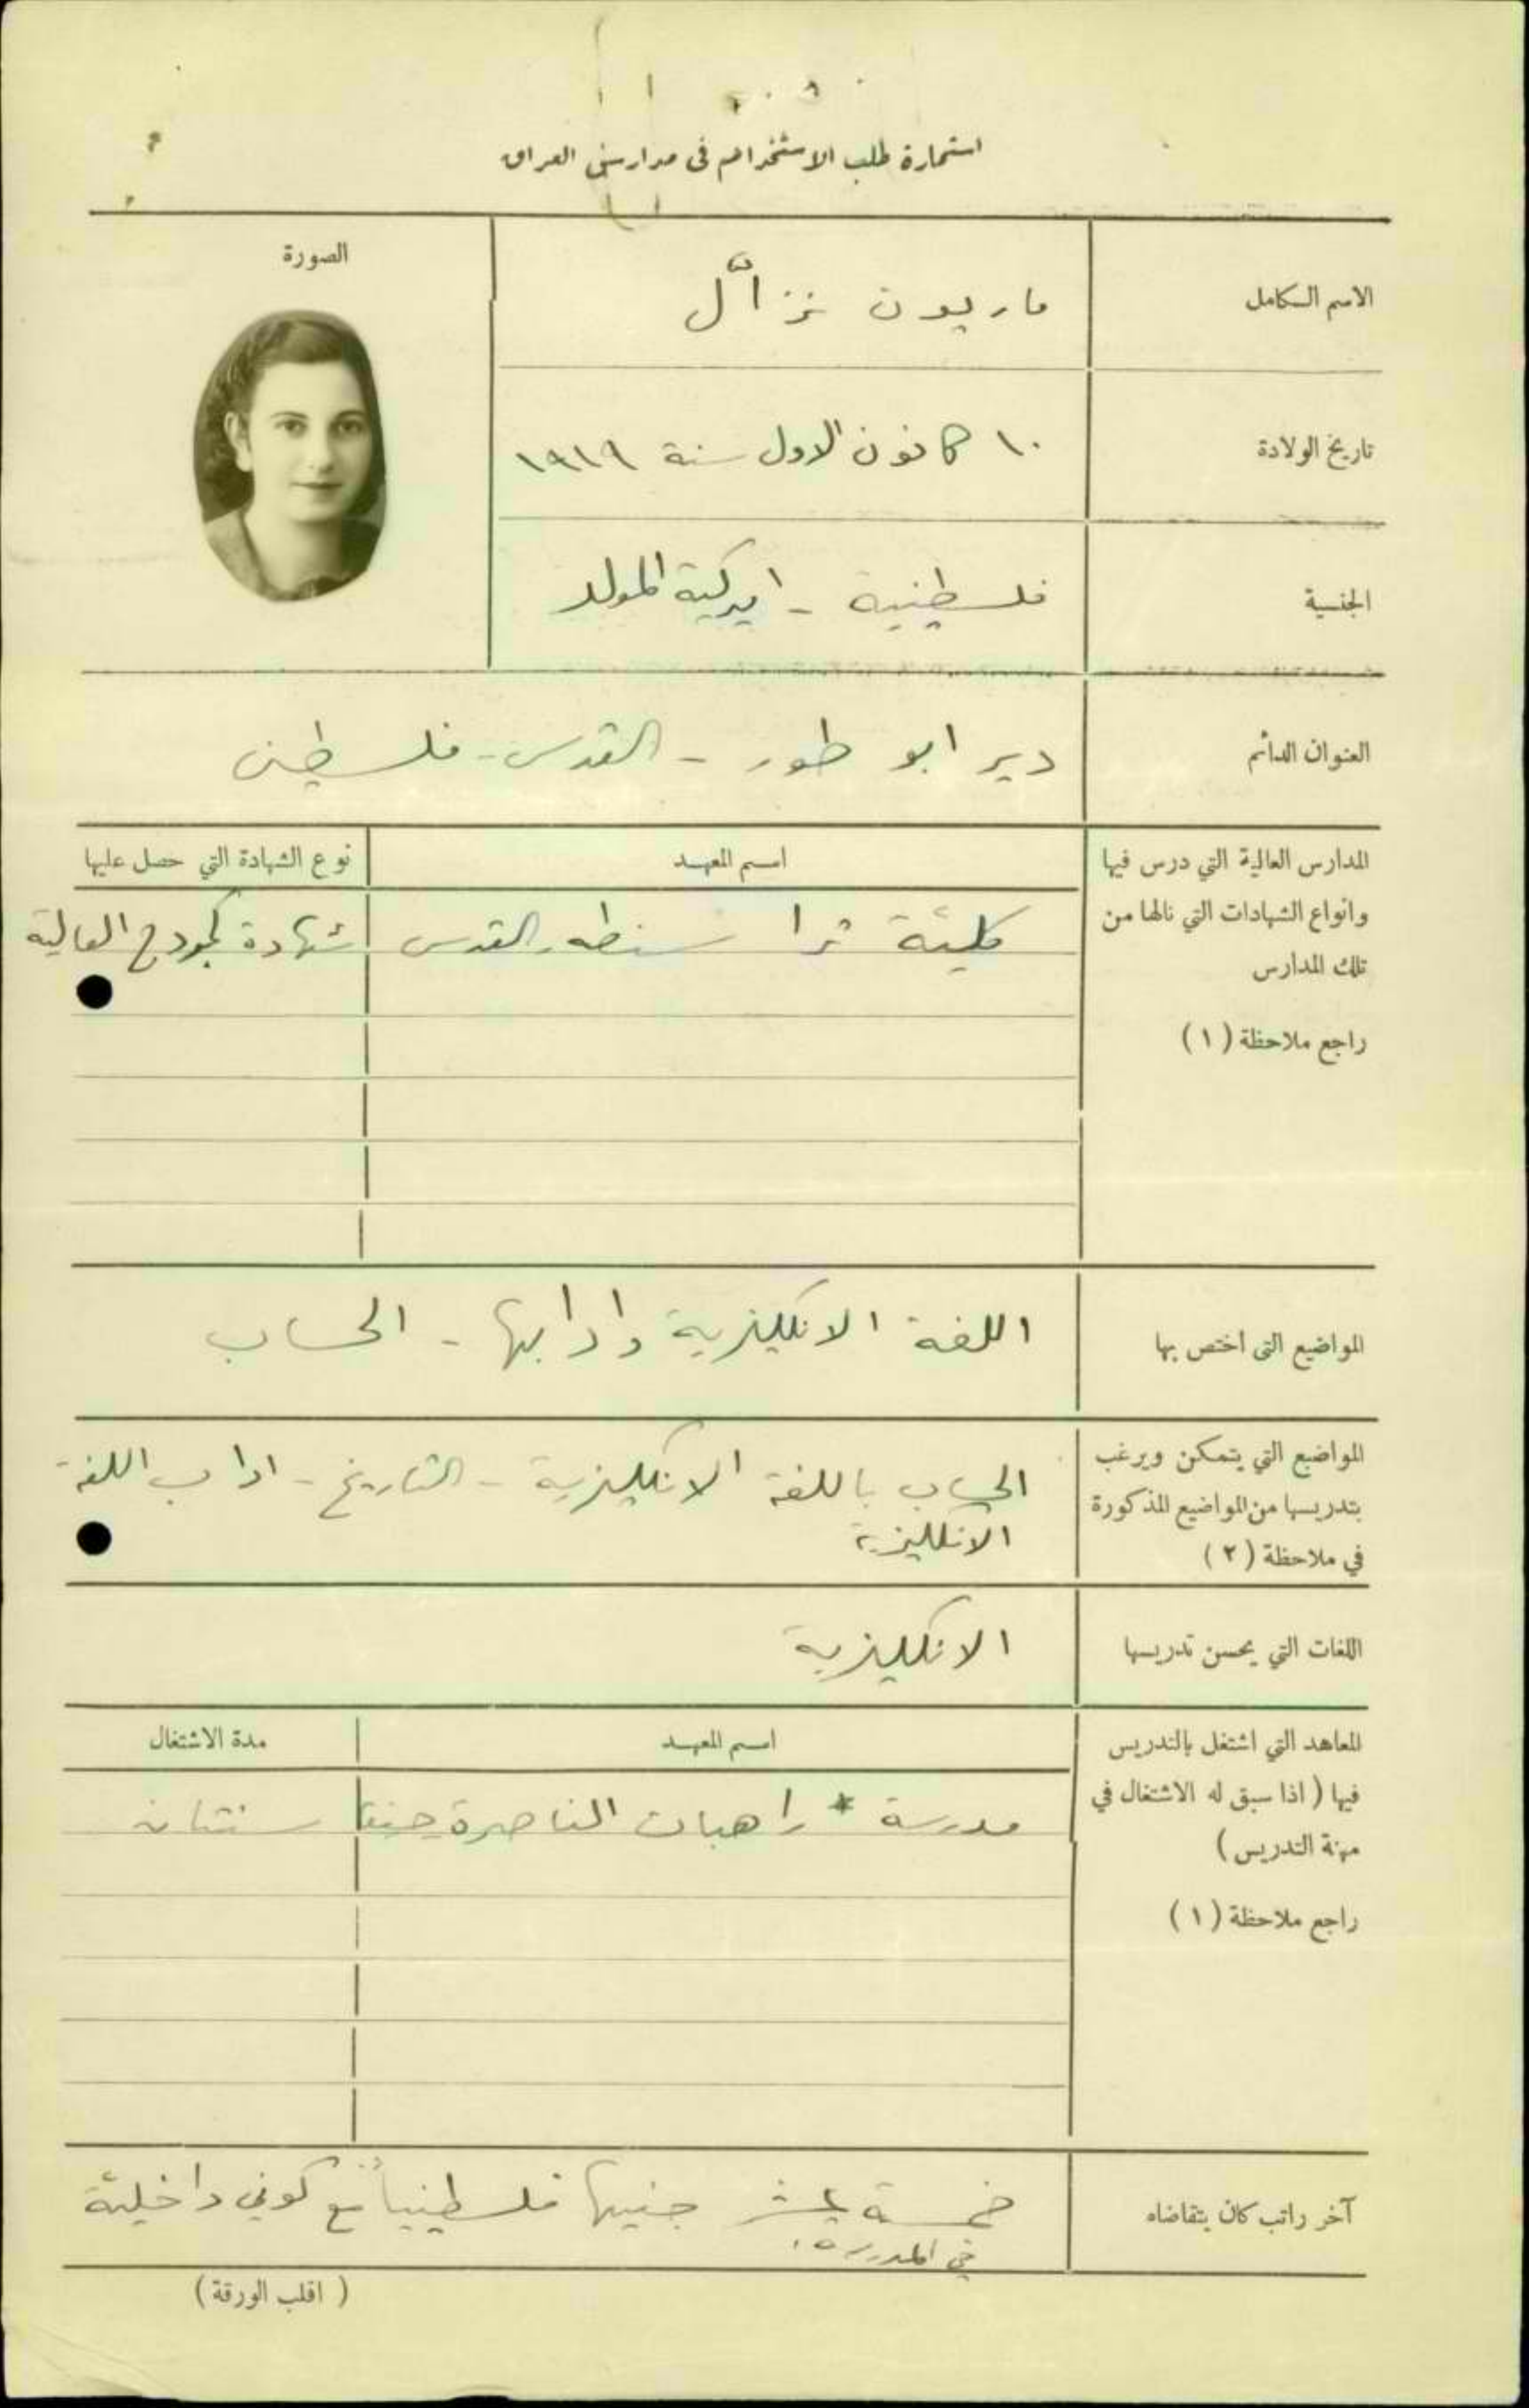 استمارة طلب الاستخدام في مدارس العراق
الصورة
الاسم الكامل
ماريون نزّال
تاريخ الولادة
١٠ كانون الاول سنة ١٩١٩
الجنسية
فلسطينية - اميركية المولد
العنوان الدائم
دير ابو طور - القدس - فلسطين
المدارس العالية التي درس فيها
وانواع الشهادات التي نالها من
تلك المدارس
راجع ملاحظة (١)
اسم المعهد
نوع الشهادة التي حصل عليها
كلية ترا سنطه القدس
شهادة العالية
المواضيع التى اختص بها
اللغة الانكليزية وادابها - الحساب
المواضيع التي يتمكن ويرغب
بتدريسها من المواضيع المذكورة
في ملاحظة (٢)
الحساب باللغة الانكليزية - التاريخ - اداب اللغة
الانكليزية
اللغات التي يحسن تدريسها
الانكليزية
المعاهد التي اشتغل بالتدريس
فيها (اذا سبق له الاشتغال في
مهنة التدريس)
راجع ملاحظة (١)
اسم المعهد
مدة الاشتغال
مدرسة * راهبات الناصرة حيفا
سنتان
آخر راتب كان يتقاضاه
خمسة عشر جنيها فلسطينياً مع كوني داخلية
في المدرسة.
(اقلب الورقة)